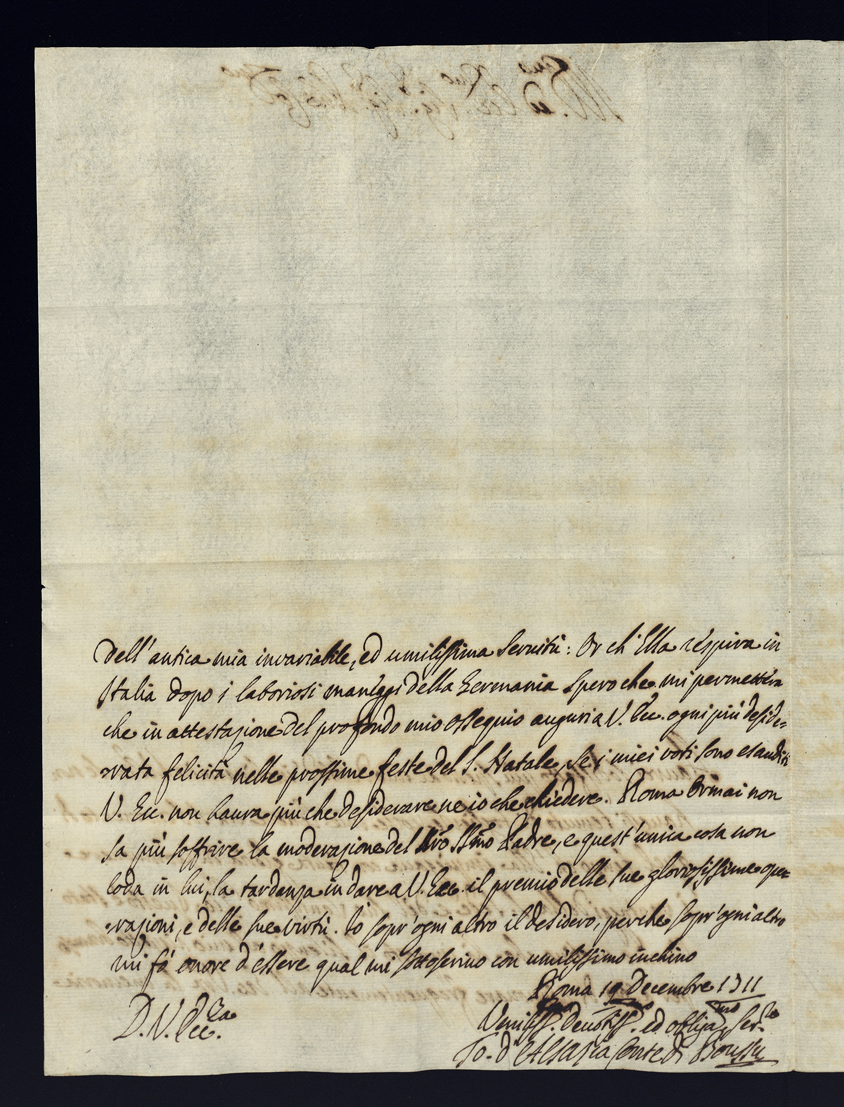 dell'antica mia invariabile, ed umilissima servitù: Or ch'Ella respira in
Italia dopo i laboriosi maneggi della Germania spero che mi permetterà
che in attestazione del profondo mio ossequio auguri a V. Ecc. ogni più deside-
rata felicità nelle prossime feste del S. Natale, se i miei voti sono esauditi
V. Ecc. non haurà più che desiderare ne io che chiedere. Roma Ormai non
sa più soffrire la moderazione del Nro Smo Padre, e quest'unica cosa non
loda in lui, la tardanza in dare a V. Ecc. il premio delle sue gloriosissime ope-
razioni, e delle sue virtù. Io sopr'ogni altro il desidero, perche sopr'ogni altro
mi fò onore d'essere qual mi sottoscrivo con umilissimo inchino
Roma 19 Decembre 1711
D. V. Ecc.za
Umiliss. Devotiss. ed obligmo Ser.re
To. d'Alsazia Conte di Boussu